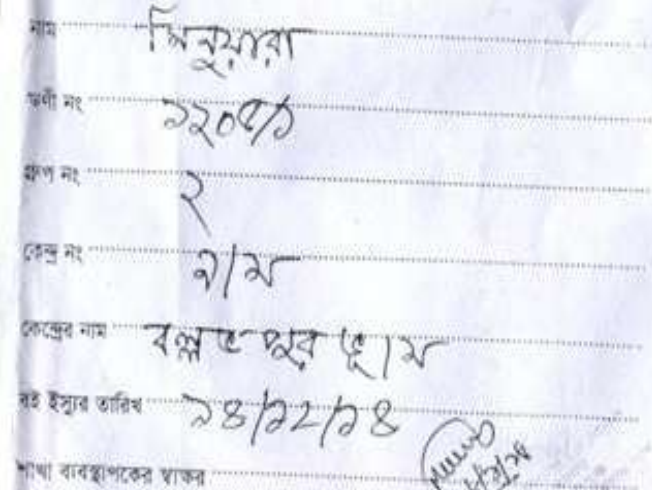 নাম মিনুয়ারা
ঋণী নং ১২০৫/১
গ্রুপ নং ২
কেন্দ্র নং ৭/ম
কেন্দ্রের নাম বল্লভপুর
বই ইস্যুর তারিখ ১৪/১২/১৪
শাখা ব্যবস্থাপকের স্বাক্ষর